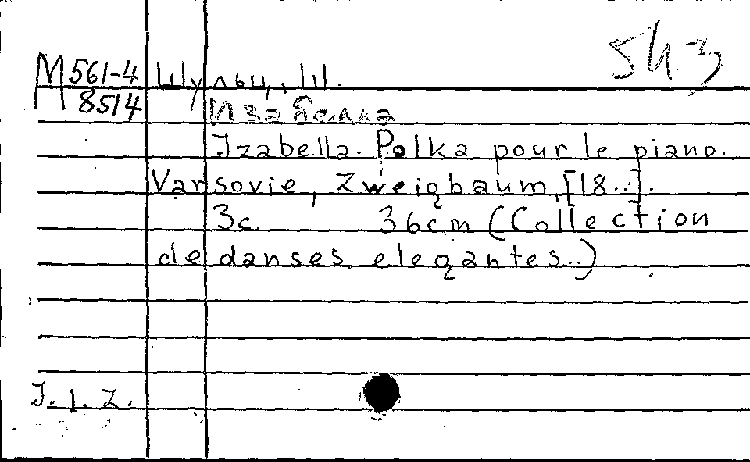 543
M 561-4 Шульц, Ш.
8514
Изабелла
Izabella. Polka pour le piano.
Varsovie, Zweigbaum, [18..].
3c. 36cm (Collection
de danses elegantes..)
J. I. Z.